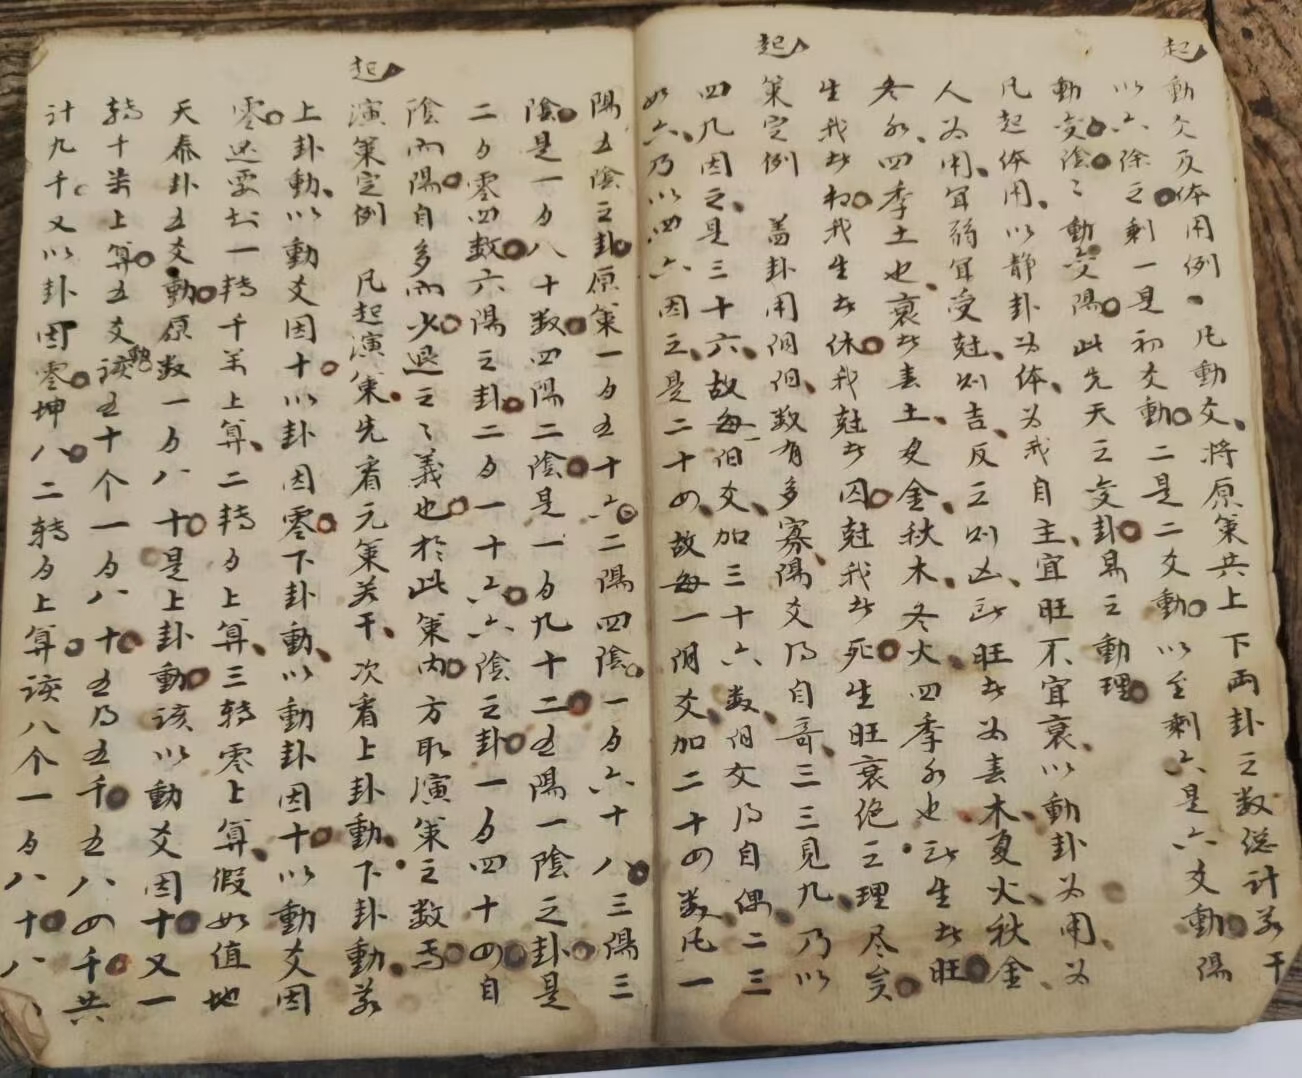 起
動爻及体用例凡動爻将原策共上下两卦之数総计若干
以六除之剩一是初爻動二是二爻動以至剩六是六爻動陽
動变陰陰動变陽此先天之变卦易之動理
凡起体用以静卦为体为我自主宜旺不宜衰以動卦为用为
人为用宜弱宜受尅则吉反之则凶旺者为春木夏火秋金
冬水四季土也衰者春土夏金秋木冬火四季水也生者旺
生我者相我生者休我尅者囚尅我者死生旺衰绝之理尽矣
起
策定例 盖卦用佪佪数有多寡陽爻乃自奇三三見九乃以
四九因之是三十六故每佪爻加三十六数佪爻乃自偶二三
如六乃以四六因之是二十四故每一阴爻加二十四数凡一
陽五陰之卦原策一百五十六二陽四陰一百六十八三陽三
陰是一百八十数四陽二陰是一百九十二五陽一陰之卦是
二百零四数六陽之卦二百一十六六陰之卦一百四十四自
陰而陽自多而少退之之義也於此策内方取演策之数焉
起
演策定例 凡起演策先看元策若干次看上卦動下卦動若
上卦動以動爻因十以卦因零下卦動以動卦因十以動爻因
零还要如一轉千若上算二轉百上算三轉零上算假如值地
天泰卦五爻動原数一百八十是上卦動该以動爻因十又一
轉千若上算五爻该五十个一百八十五乃五千五八四千共
计九千又以卦因零坤八二轉百上算该八个一百八十八